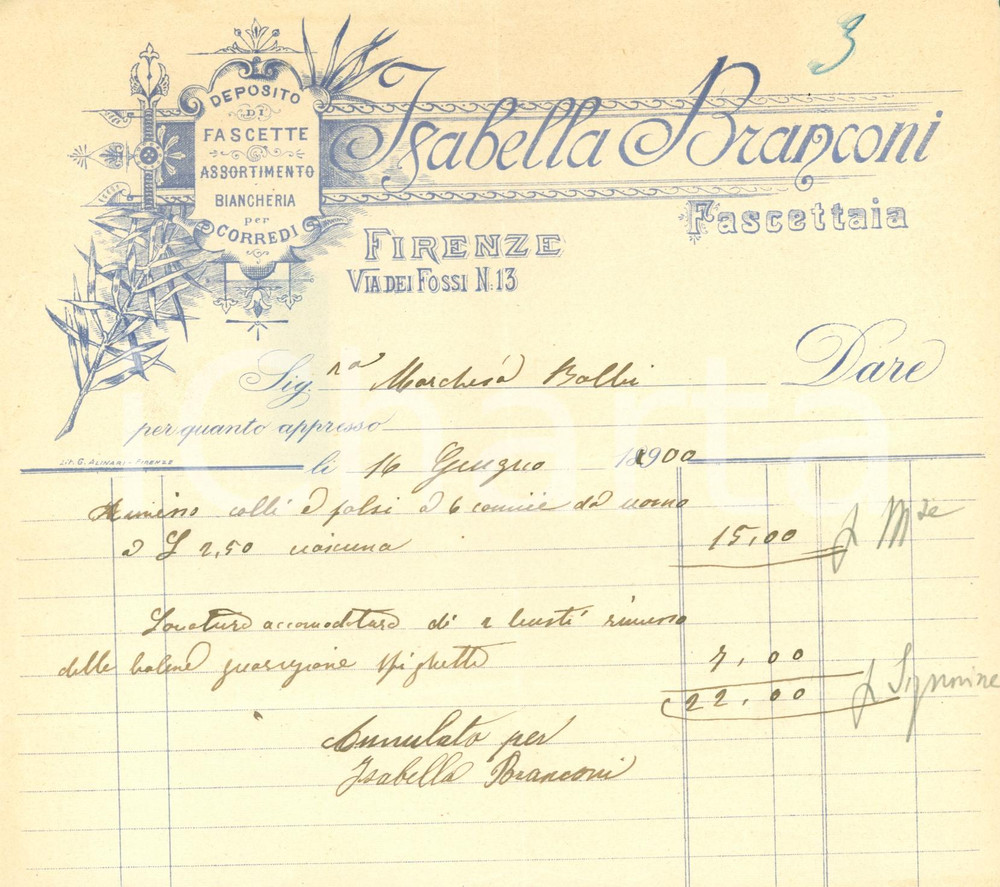 3
DEPOSITO
DI
FASCETTE
ASSORTIMENTO
BIANCHERIA
per
CORREDI
Isabella Branconi
Fascettaia
FIRENZE
VIA DEI FOSSI N. 13
Sig.ra Marchesa Balbi Dare
per quanto appresso
LIT. G. ALINARI - FIRENZE
li 16 Giugno 1900
Rimesso colli e polsi a 6 camicie da uomo
a £ 2,50 ciascuna 15,00 Mse
accomodatura di 2 busti rimesso
delle balene guarnizione spighetta 7,00
22,00 Signorine
Annulato per
Isabella Branconi
iCharta